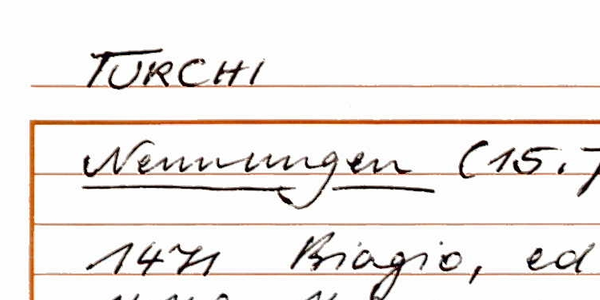 TURCHI
Nennungen (15.
1471 Biagio, ed